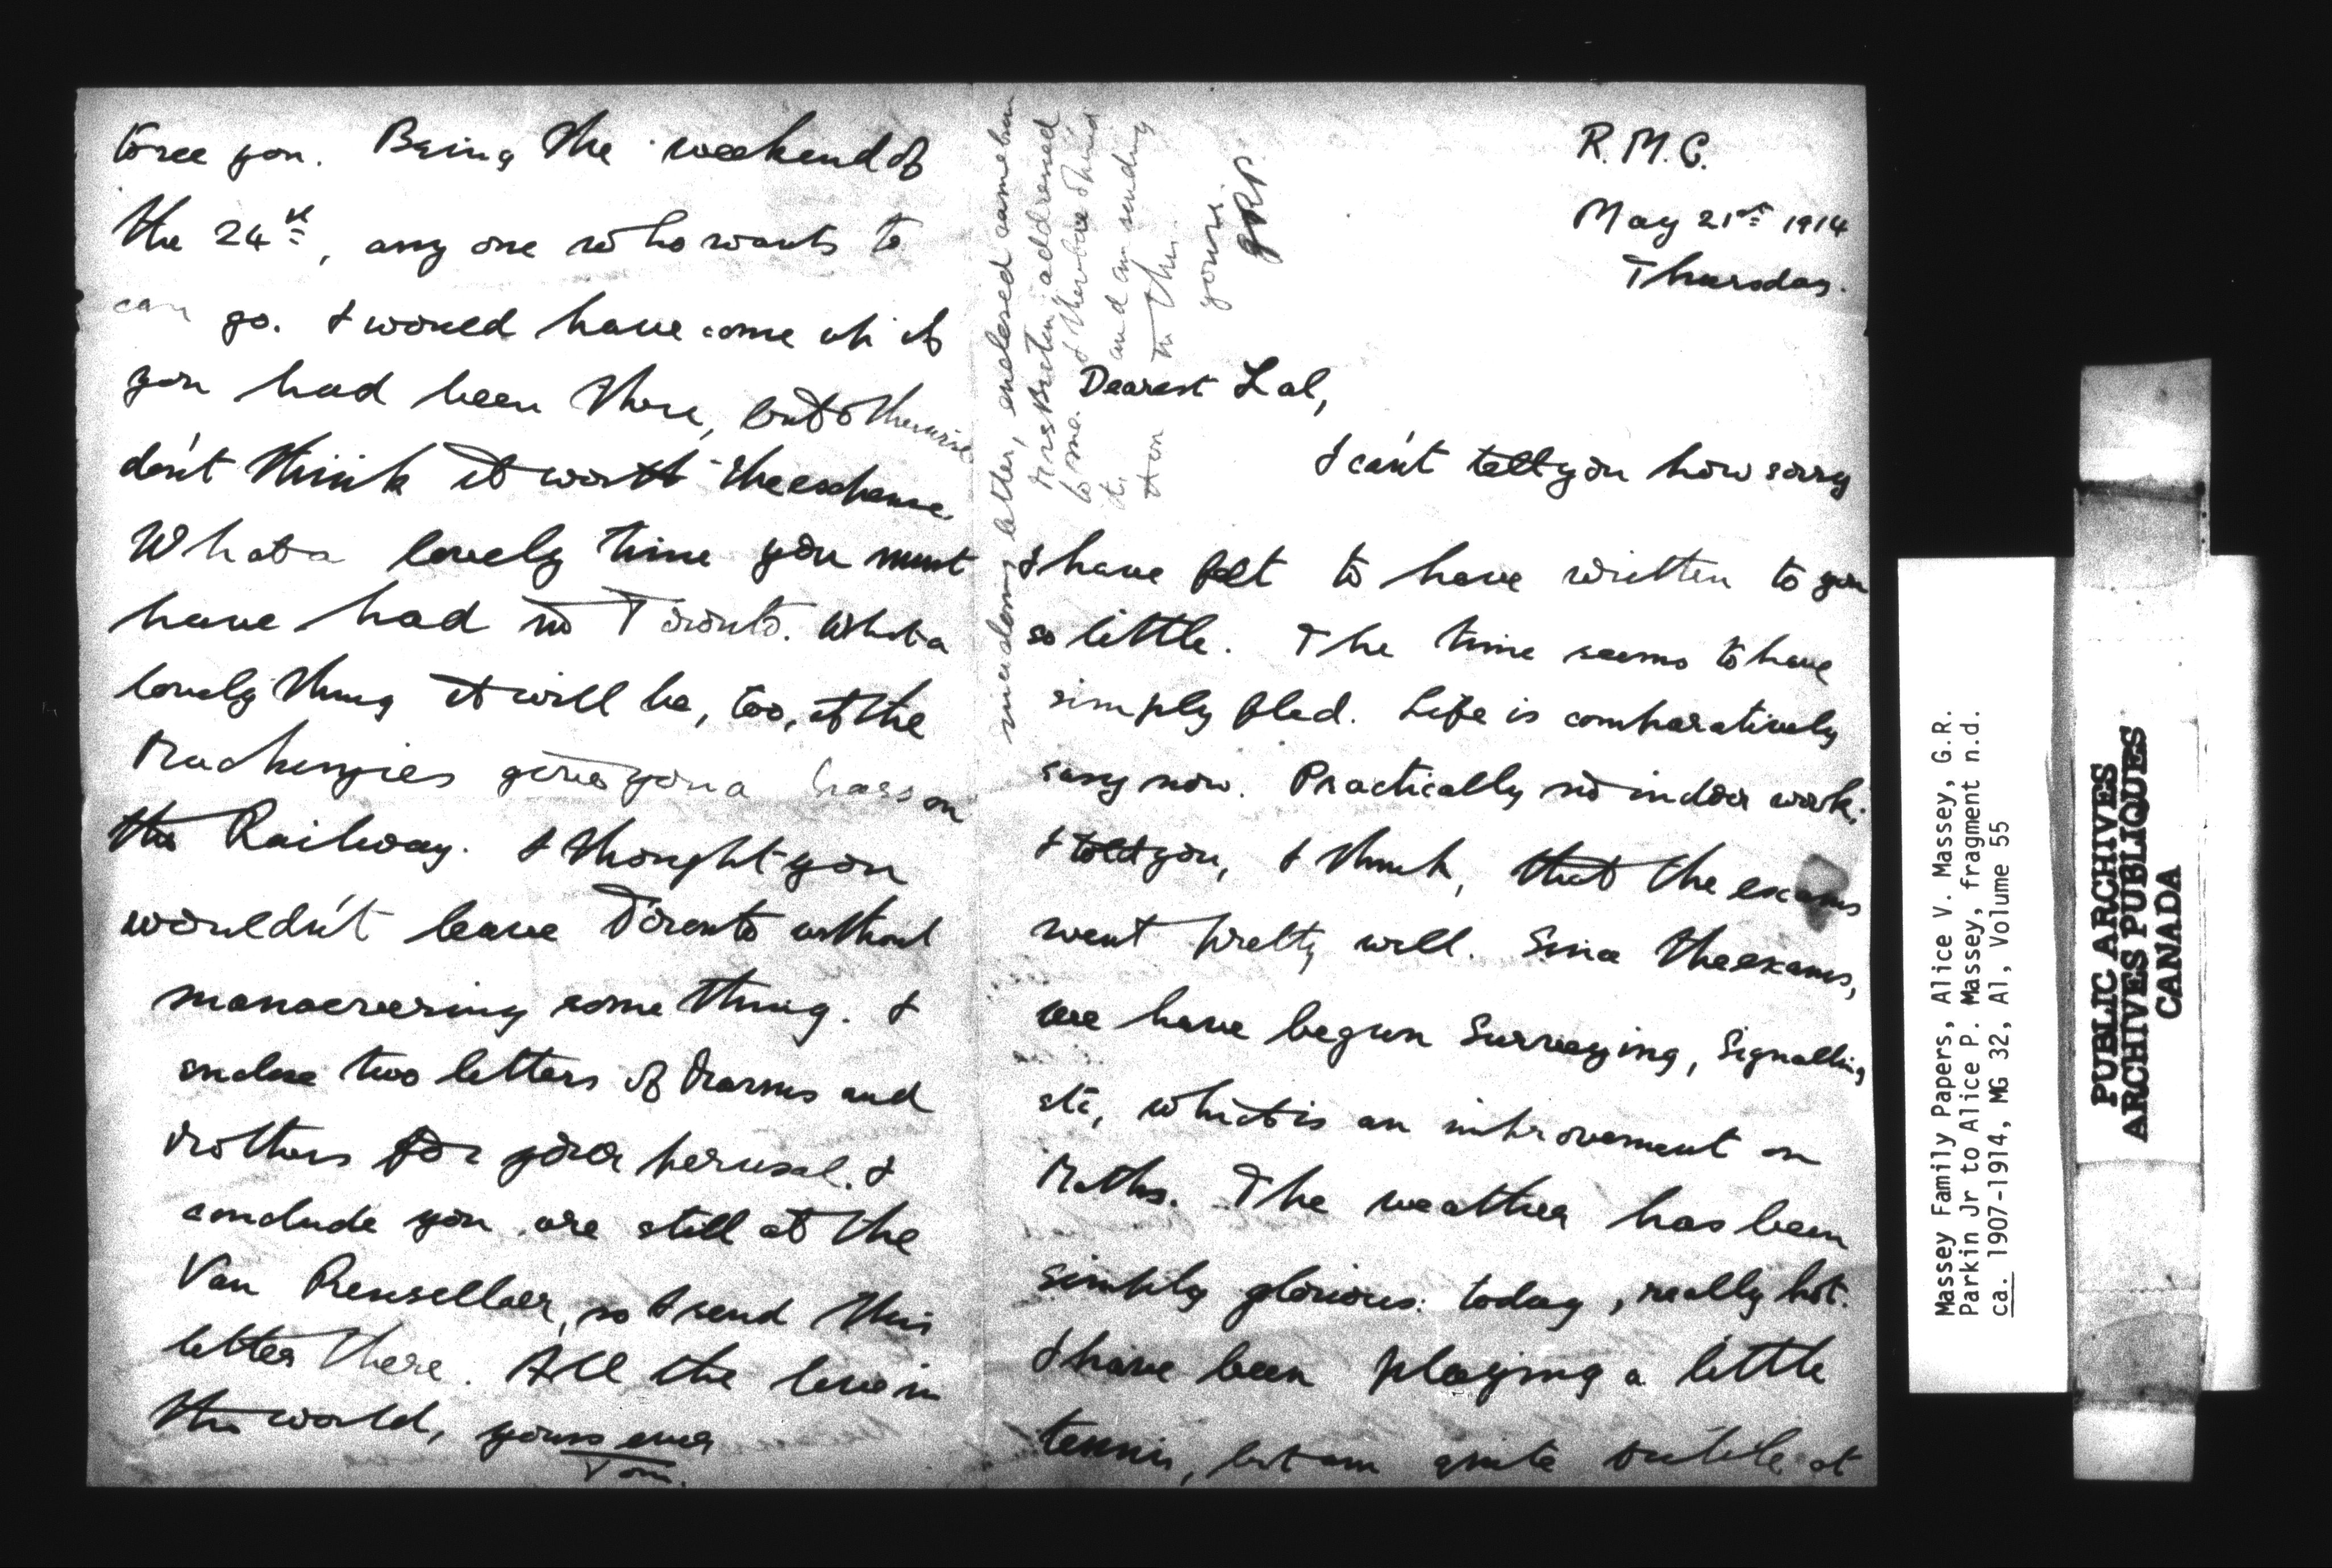 R.M.C.
May 21st 1914
Thursday.
Dearest Lal,
I can't tell you how sorry
I have felt to have written to you
so little. The time seems to have
simply fled. Life is comparatively
easy now. Practically no indoor work.
I told you, I think, that the exams
went pretty well. Since the exams,
we have begun Surveying, Signalling
etc, which is an improvement on
Maths. The weather has been
simply glorious: today, really hot.
I have been playing a little
tennis, but am quite futile at
to see you. Being the weekend of
the 24th, any one who wants to
can go. I would have come up if
you had been there, but otherwise
don't think it worth the expense.
What a lovely time you must
have had in Toronto. What a
lovely thing it will be, too, if the
Mackenzies give you a pass on
the Railway. I thought you
wouldn't leave Toronto without
manoevering something. I
enclose two letters of Marms and
Mothers for your perusal. I
conclude you are still at the
Van Rensellaer, so I send this
letter there. All the love in
the world, yours ever
Tom.
letter, enclosed came from
addressed
to me. I therefore
it, and am sending
it on in this.
yours.
GRP.
Massey Family Papers, Alice V. Massey, G.R.
Parkin Jr to Alice P. Massey, fragment n.d.
ca. 1907-1914, MG 32, A1, Volume 55
PUBLIC ARCHIVES
ARCHIVES PUBLIQUES
CANADA